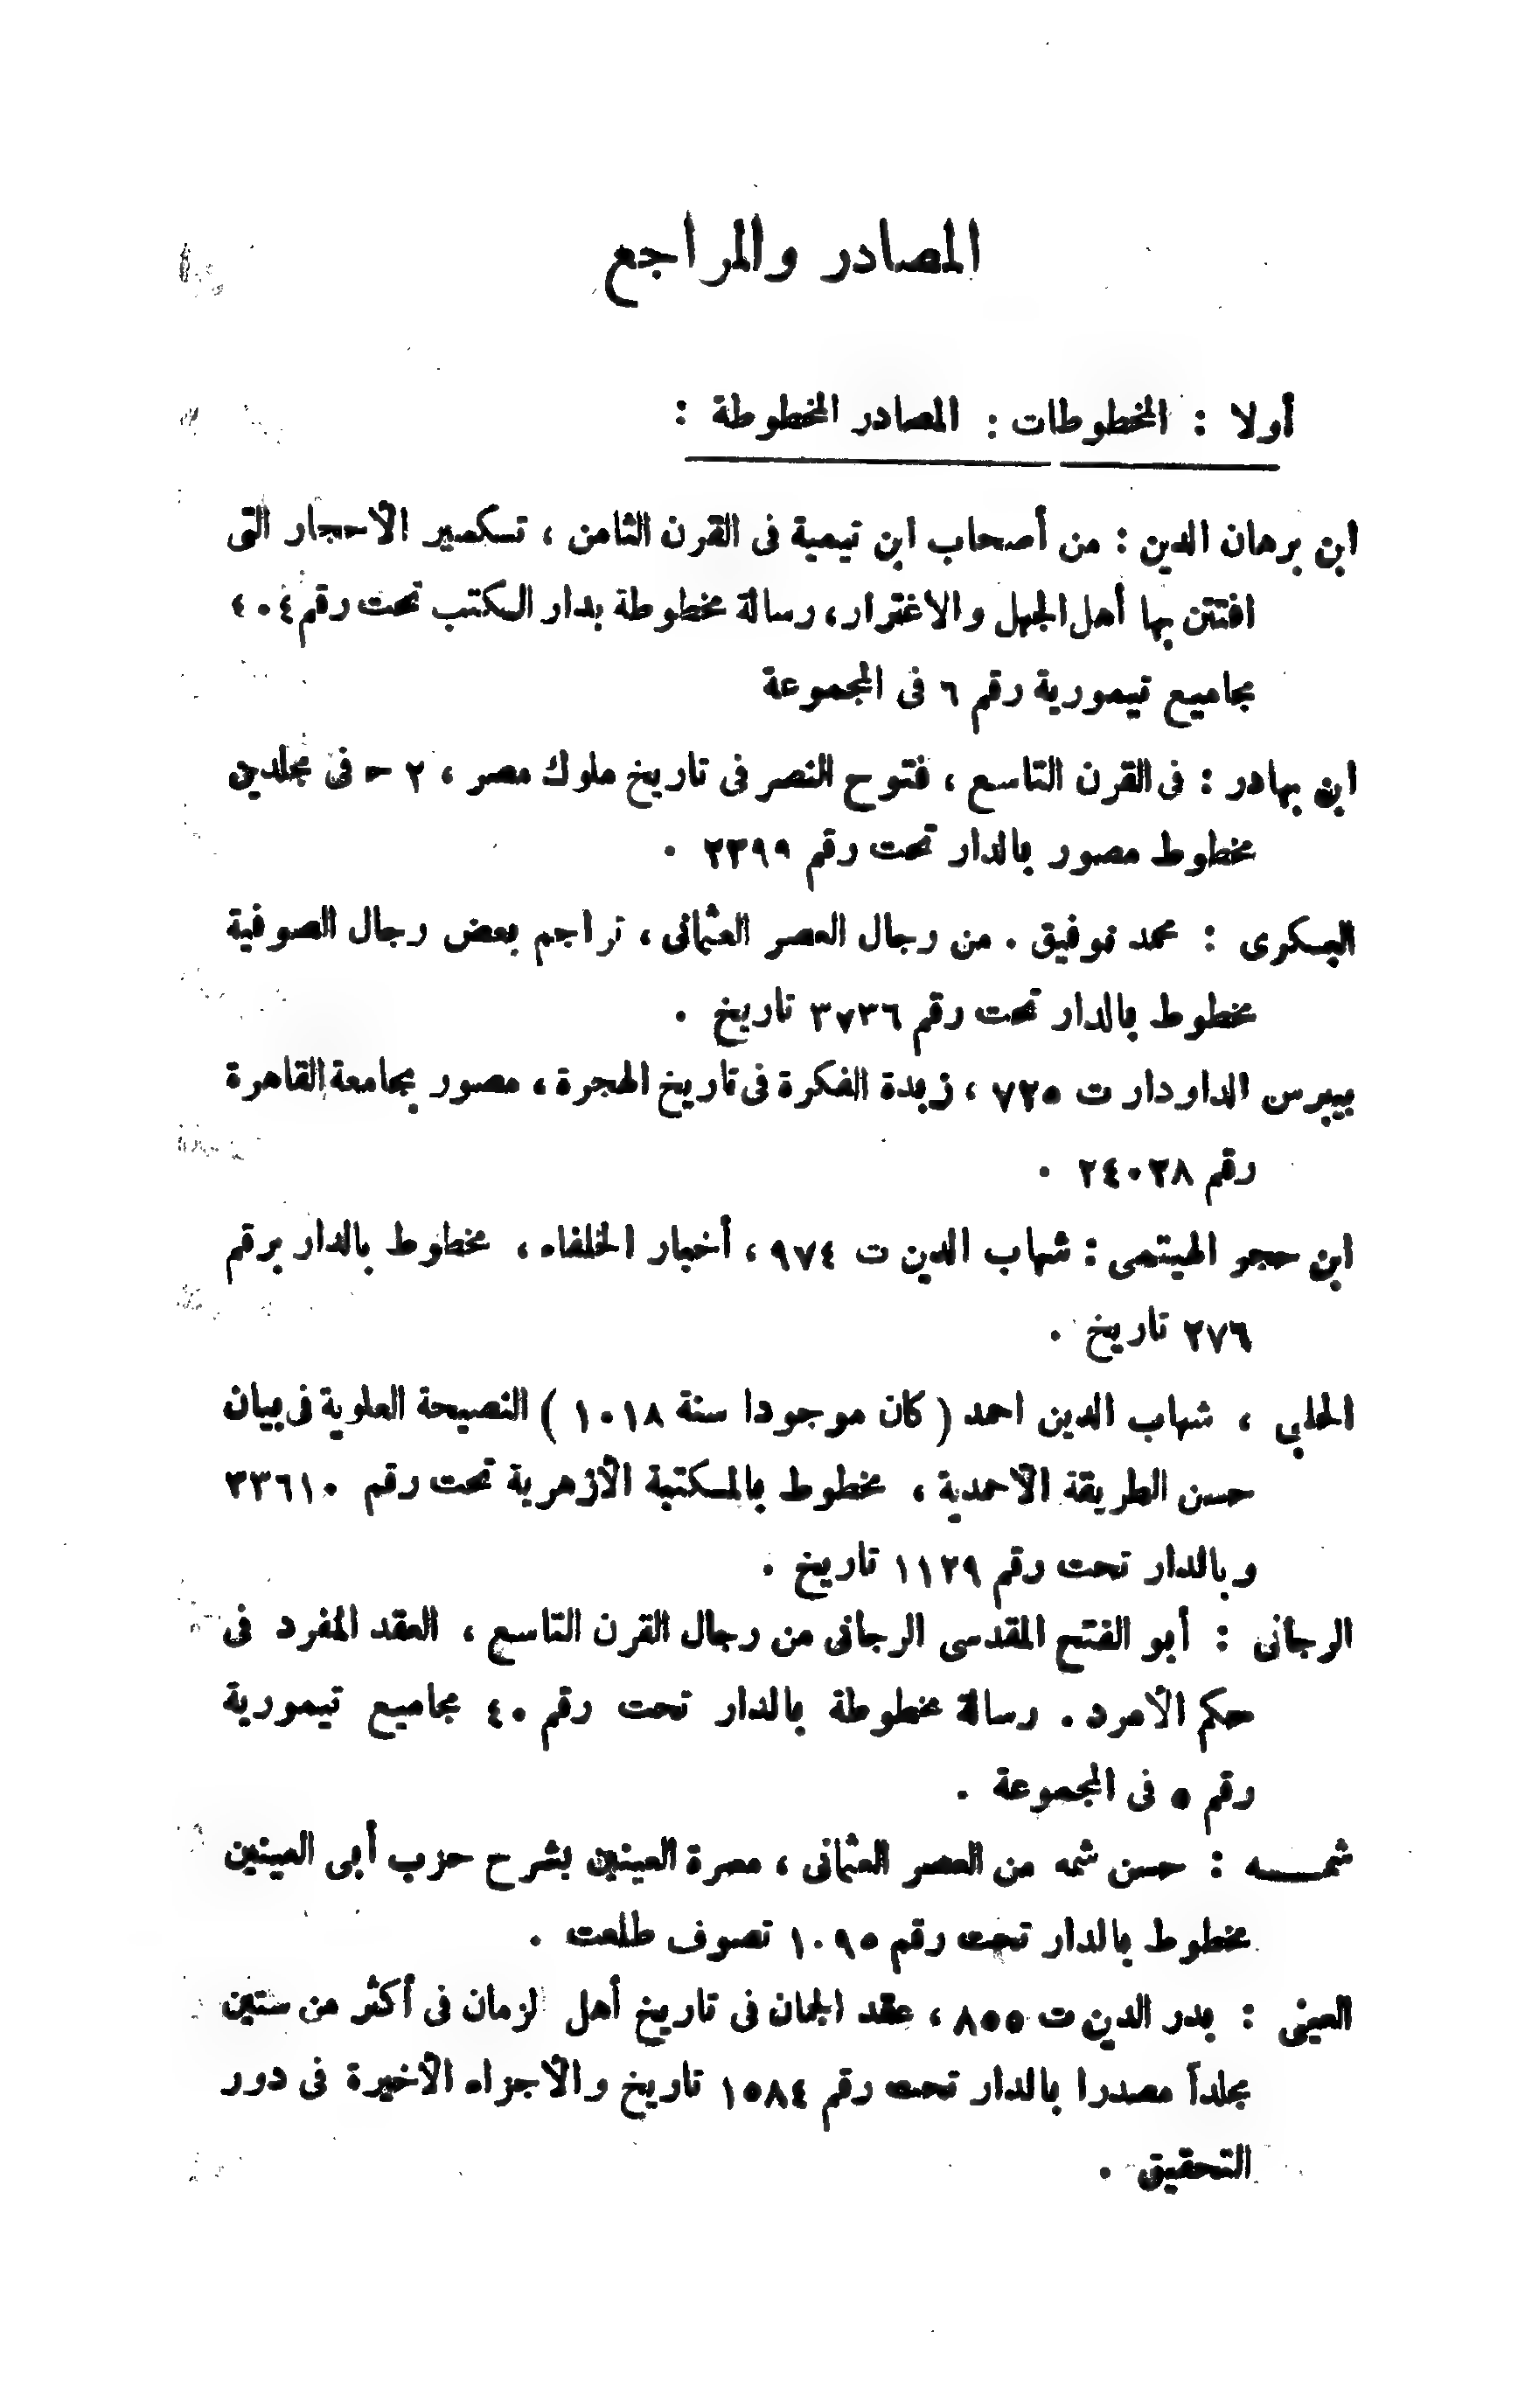 المصادر والمراجع
أولا : المخطوطات : المصادر المخطوطة :
ابن برهان الدين : من أصحاب ابن تيمية فى القرن الثامن ، تكسير الأحجار التى
افتتن بها أهل الجهل والاغترار، رسالة مخطوطة بدار الكتب تحت رقم ٤٠٤
مجاميع تيمورية رقم ٦ فى المجموعة
ابن بهادر : فى القرن التاسع ، فتوح النصر فى تاريخ ملوك مصر ، ٢ ح فى مجلدين
مخطوط مصور بالدار تحت رقم ٢٣٩٩ .
البسكرى : محمد توفيق . من رجال العصر العثمانى ، تراجم بعض رجال الصوفية
مخطوط بالدار تحت رقم ٣٧٣٦ تاريخ .
بيبرس الداودار ت ٧٢٥ ، زبدة الفكرة فى تاريخ الهجرة ، مصور بجامعة القاهرة
رقم ٢٤٠٢٨ .
ابن حجر الهيتمى : شهاب الدين ت ٩٧٤ ، أخبار الخلفاء ، مخطوط بالدار برقم
٢٧٦ تاريخ .
الحلبى ، شهاب الدين احمد ( كان موجودا سنة ١٠١٨ ) النصيحة العلوية فى بيان
حسن الطريقة الأحمدية ، مخطوط بالمكتبة الأزهرية تحت رقم ٣٣٦١٠
وبالدار تحت رقم ١١٢٩ تاريخ .
الرجانى : أبو الفتح المقدسى الرجانى من رجال القرن التاسع ، العقد المفرد فى
حكم الأمرد . رسالة مخطوطة بالدار تحت رقم ٤٠ مجاميع تيمورية
رقم ٥ فى المجموعة .
شمـــه : حسن شمه من العصر العثمانى ، مسرة العينين بشرح حزب أبى العينين
مخطوط بالدار تحت رقم ١٠٩٥ تصوف طلعت .
العينى : بدر الدين ت ٨٥٥ ، عقد الجمان فى تاريخ أهل لزمان فى أكثر من ستين
مجلداً مصدرا بالدار تحت رقم ١٥٨٤ تاريخ والأجزاء الأخيرة فى دور
التحقيق .